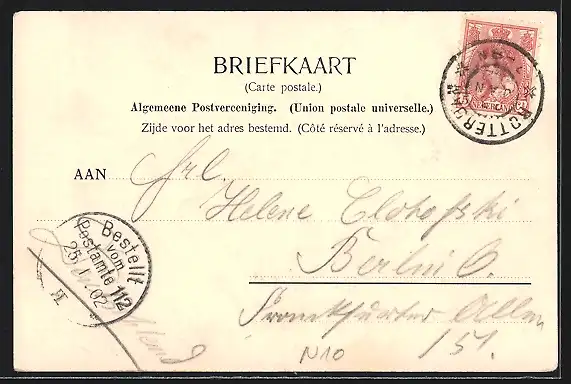 BRIEFKAART
(Carte postale.)
Algemeene Postvereeniging. (Union postale universelle.)
Zijde voor het adres bestemd. (Côté réservé à l'adresse.)
AAN
Frl.
Helene
Berlin O.
Frankfurter Allee
151.
N10
ROTTERD
NEDERLAND
Bestellt
vom
Postamte 112
25 1. 02